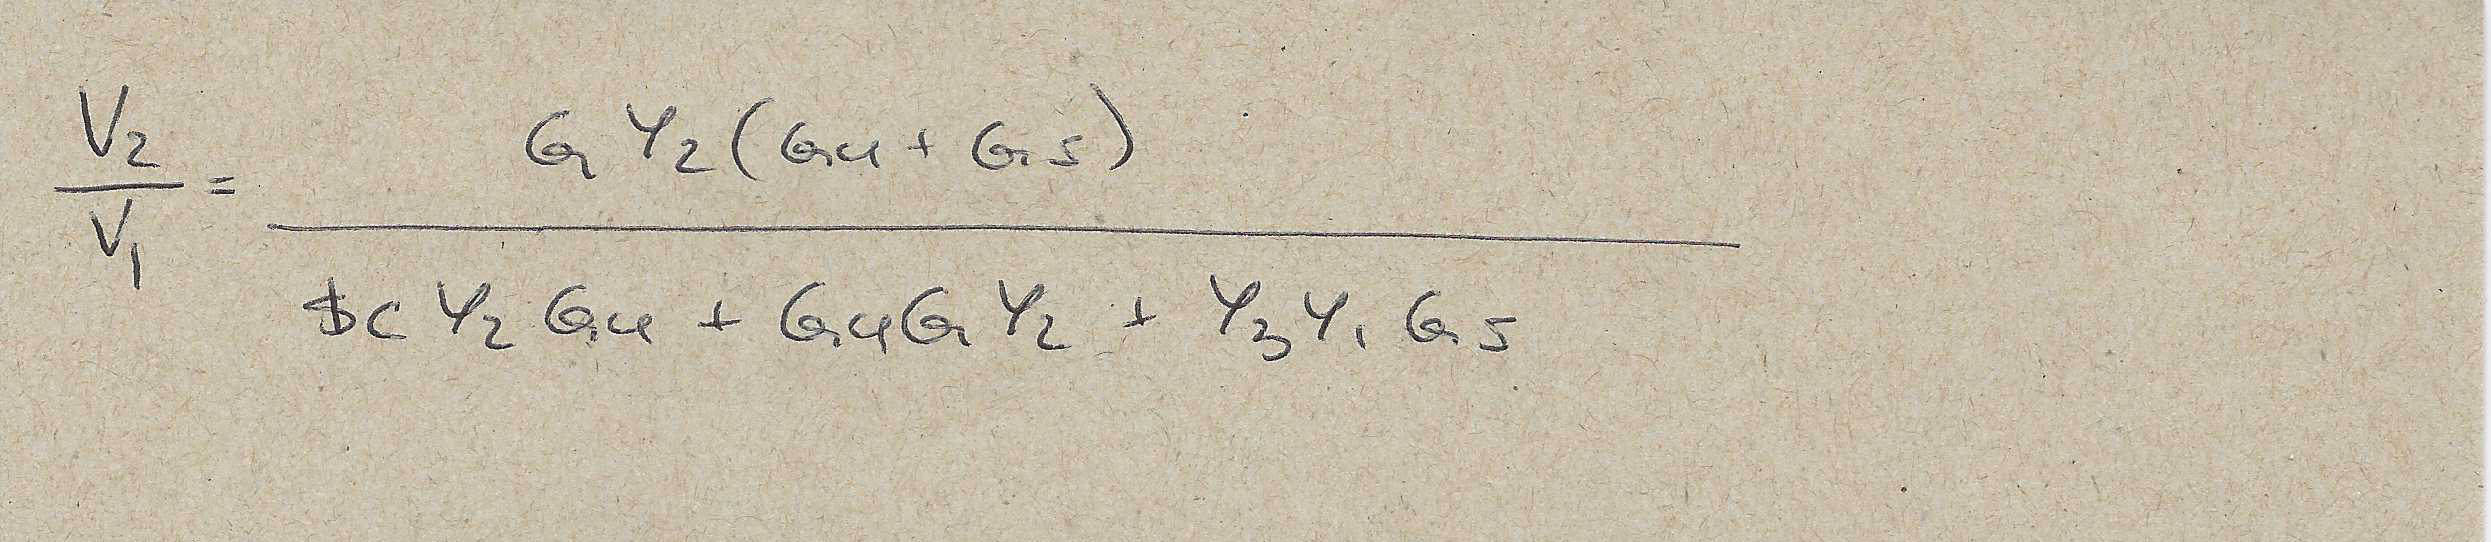 V₂/V₁ = G Y₂ (G4 + G5) / $C Y₂ G4 + G4 G Y₂ + Y₃ Y₁ G5